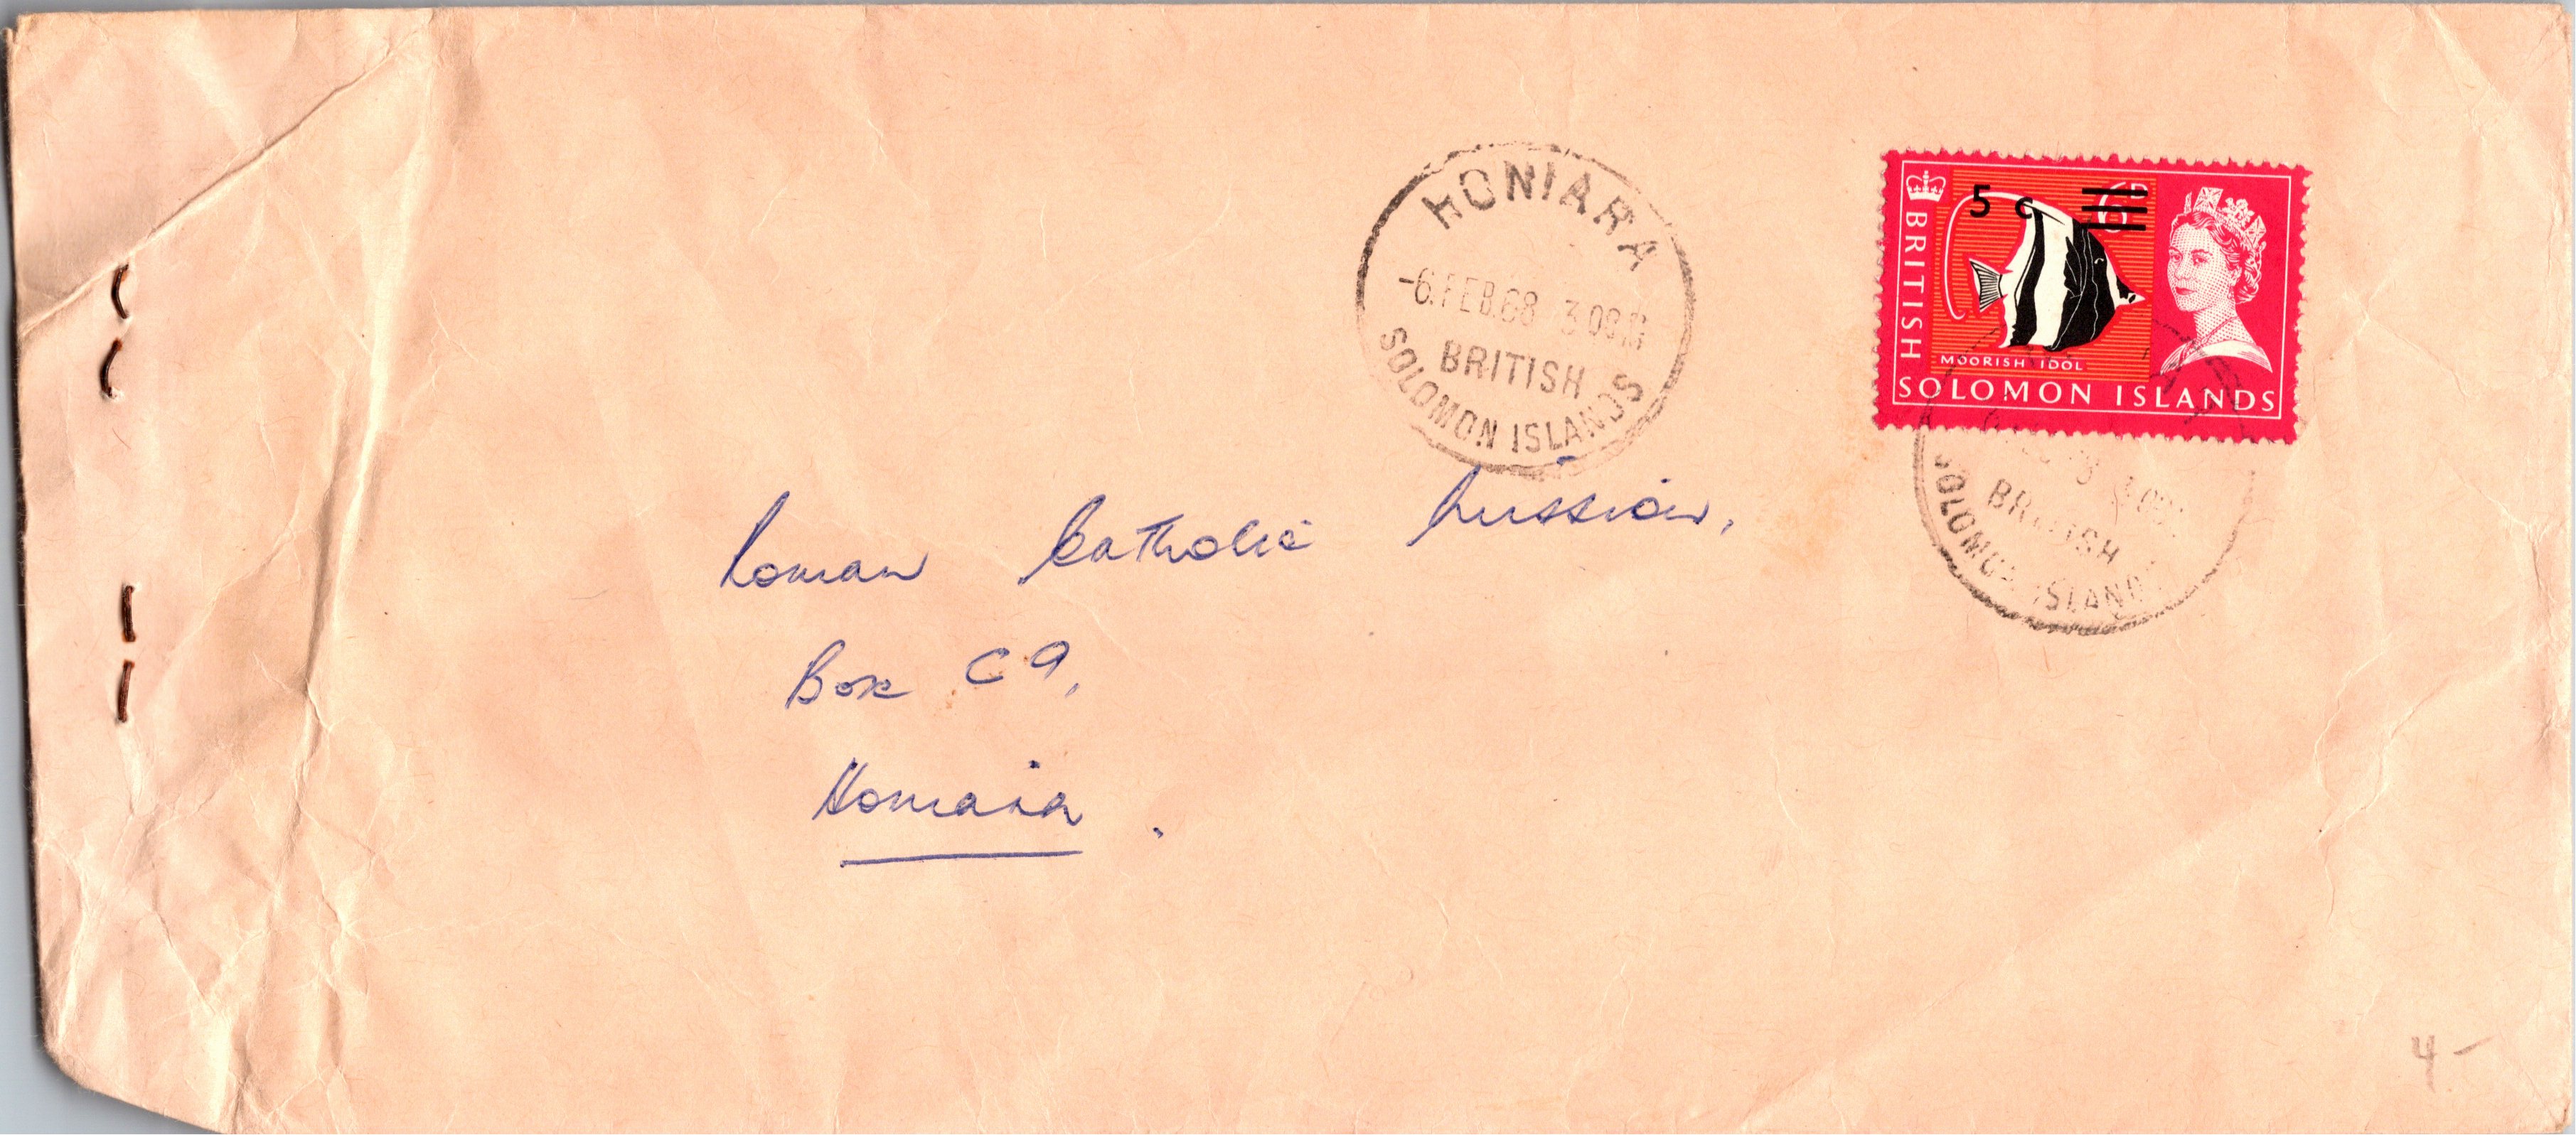 HONIARA
-6.FEB.68 3
BRITISH
SOLOMON ISLANDS
5 c
6D
BRITISH
MOORISH IDOL
SOLOMON ISLANDS
BRITISH
SOLOMON ISLANDS
Roman Catholic Mission,
Box C9,
Honiara.
4-